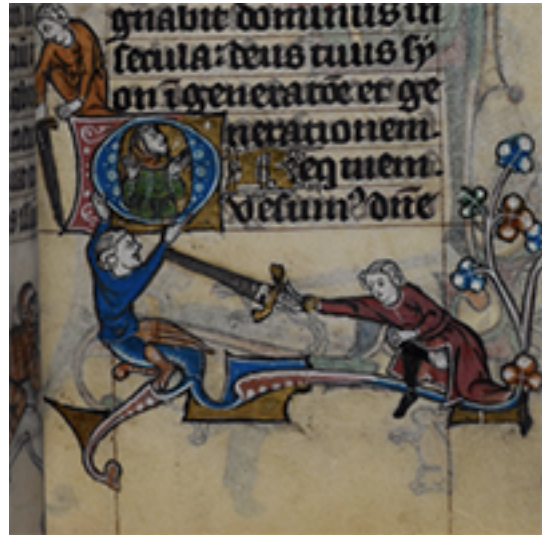 gnabit dominus in
secula: deus tuus sy
on ī generatōe et ge
nerationem.
Requiem.
Quesumꝰ dñe